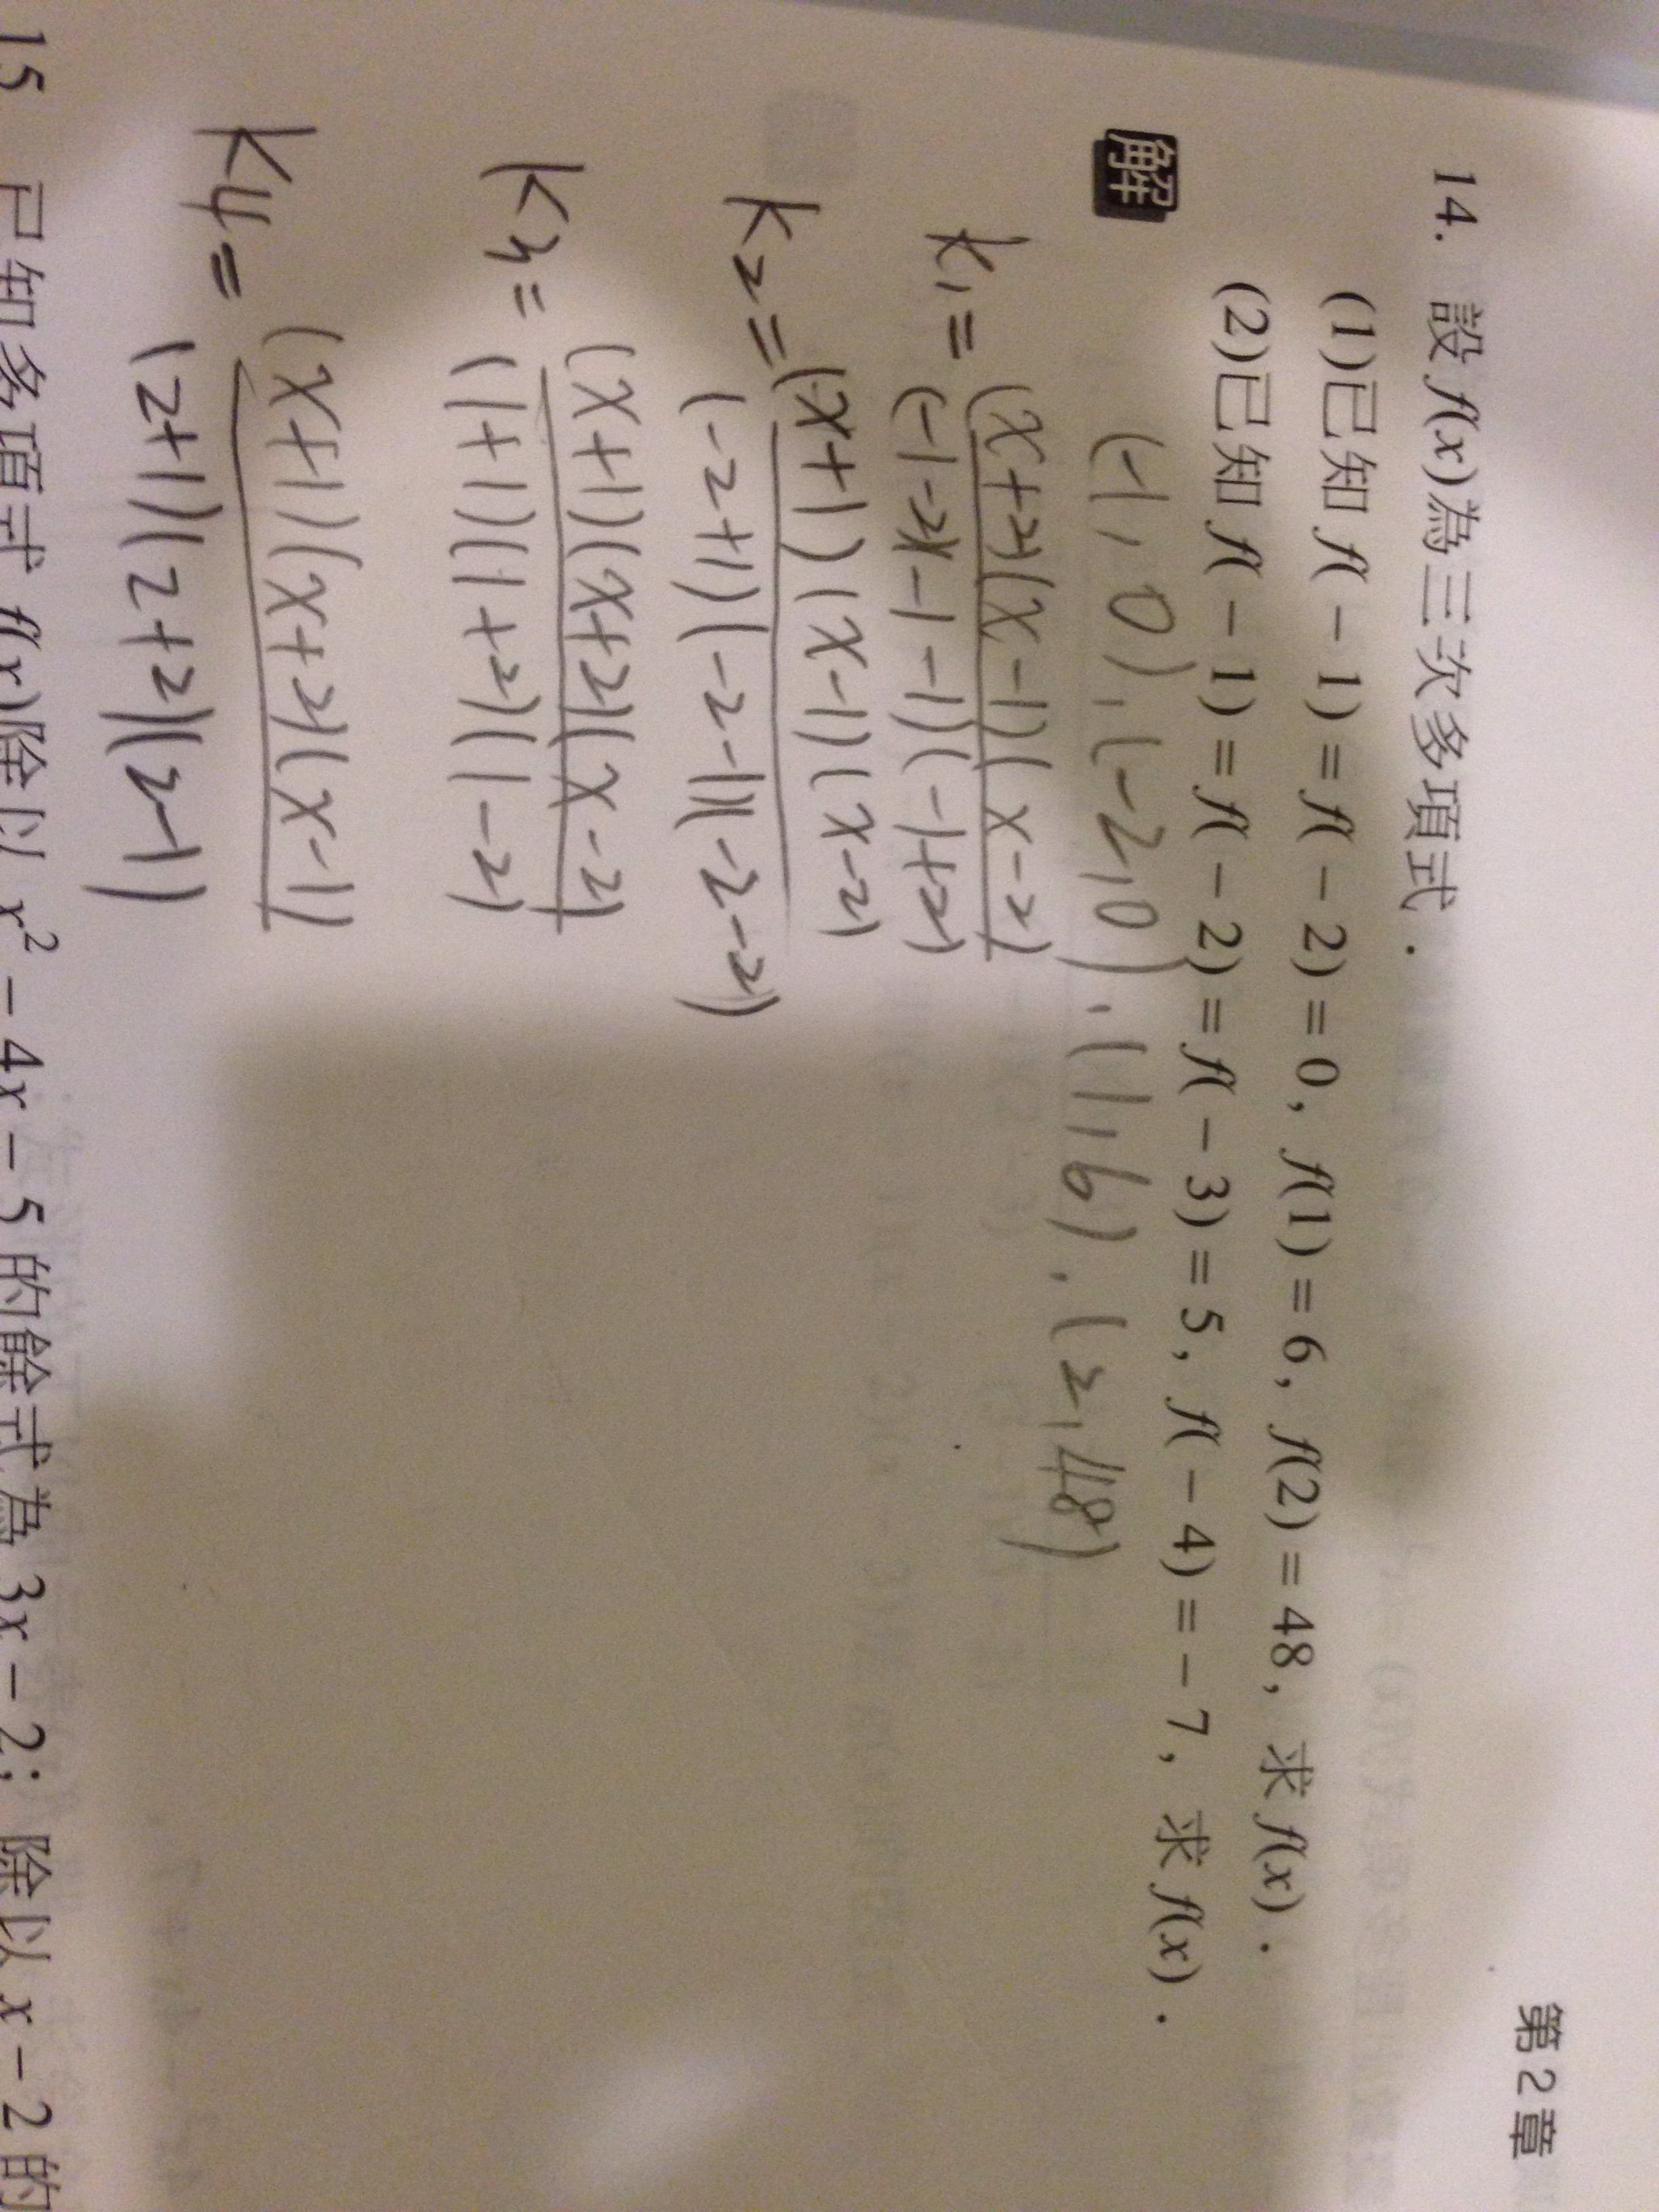 第2章
14. 設 f(x)為三次多項式.
(1)已知 f(-1)=f(-2)=0, f(1)=6, f(2)=48, 求 f(x).
(2)已知 f(-1)=f(-2)=f(-3)=5, f(-4)=-7, 求 f(x).
解
(-1,0).(-2,0).(1,6).(2,48)
k1=(x+2)(x-1)(x-2)
(-1-2)(-1-1)(-1+2)
K2=(x+1)(x-1)(x-2)
(-2+1)(-2-1)(-2-2)
K3=(x+1)(x+2)(x-2)
(1+1)(1+2)(1-2)
K4=(x+1)(x+2)(x-1)
(2+1)(2+2)(2-1)
15 已知多項式 f(x)除以 x²-4x-5 的餘式為 3x-2; 除以 x-2 的